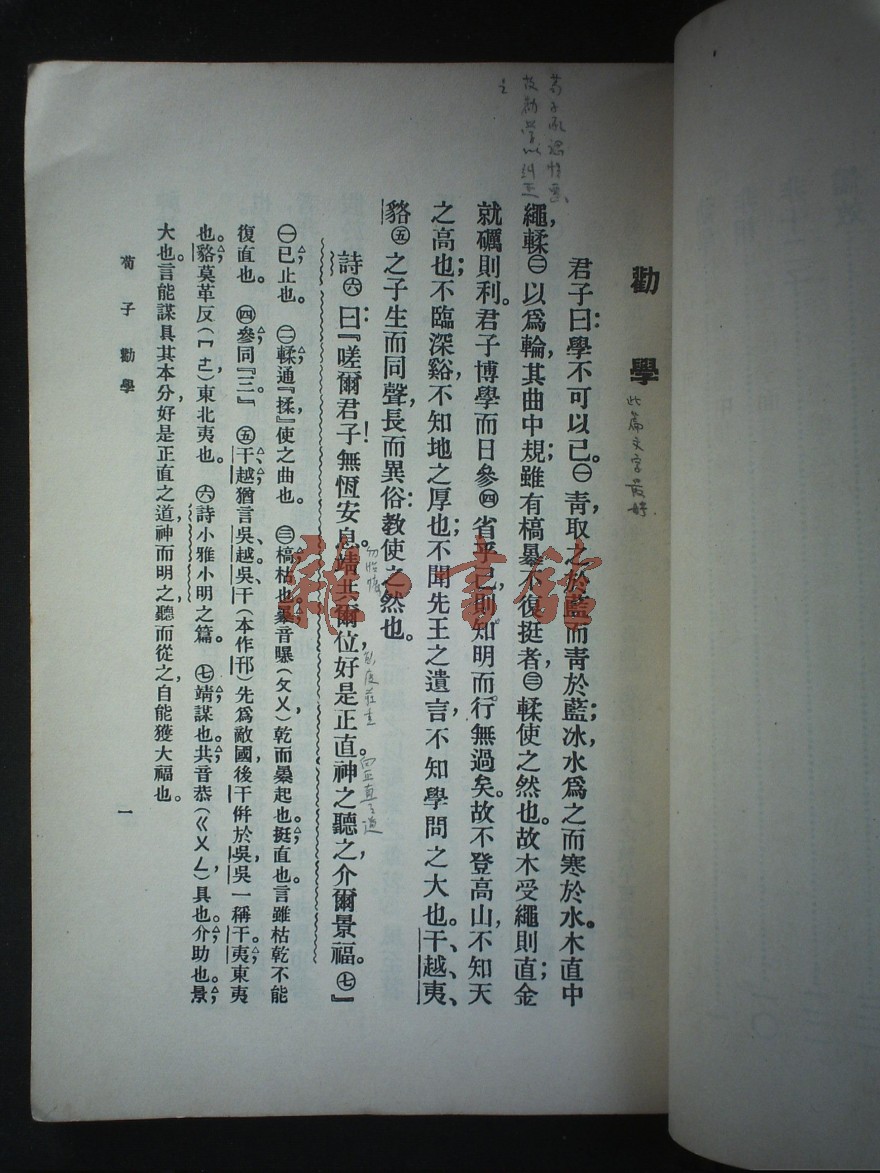 勸學
此篇文字最好
君子曰：學不可以已。㊀青，取之於藍而青於藍；冰，水爲之而寒於水。木直中
繩，輮㊁以爲輪，其曲中規；雖有槁暴，不復挺者，㊂輮使之然也。故木受繩則直；金
就礪則利。君子博學而日參㊃省乎己，則知明而行無過矣。故不登高山，不知天
之高也；不臨深谿，不知地之厚也；不聞先王之遺言，不知學問之大也。干、越、夷、
貉㊄之子生而同聲，長而異俗，教使之然也。
詩㊅曰：『嗟爾君子！無恆安息。靖共爾位，好是正直。神之聽之，介爾景福。㊆』
向正直之道
㊀已，止也。 ㊁輮，通『揉，』使之曲也。 ㊂槁，枯也。暴音曝（ㄆㄨ）乾而暴起也。挺，直也。言雖枯乾不能
復直也。 ㊃參，同『三。』 ㊄干、越，猶言吳、越。吳、干（本作邗）先爲敵國，後干併於吳，吳一稱干。夷，東夷
也。貉，莫革反（ㄇㄜ）東北夷也。 ㊅詩小雅小明之篇。 ㊆靖，謀也。共音恭（ㄍㄨㄥ）具也。介，助也。景，
大也。言能謀具其本分，好是正直之道，神而明之，聽而從之，自能獲大福也。
荀子勸學
一
雜·書館